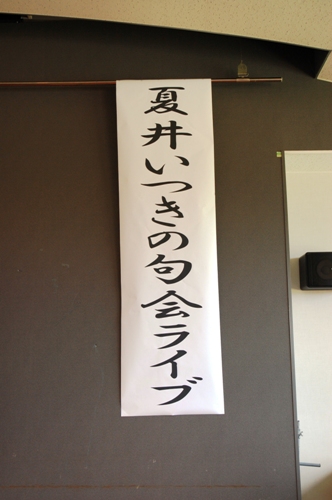 夏井いつきの句会ライブ